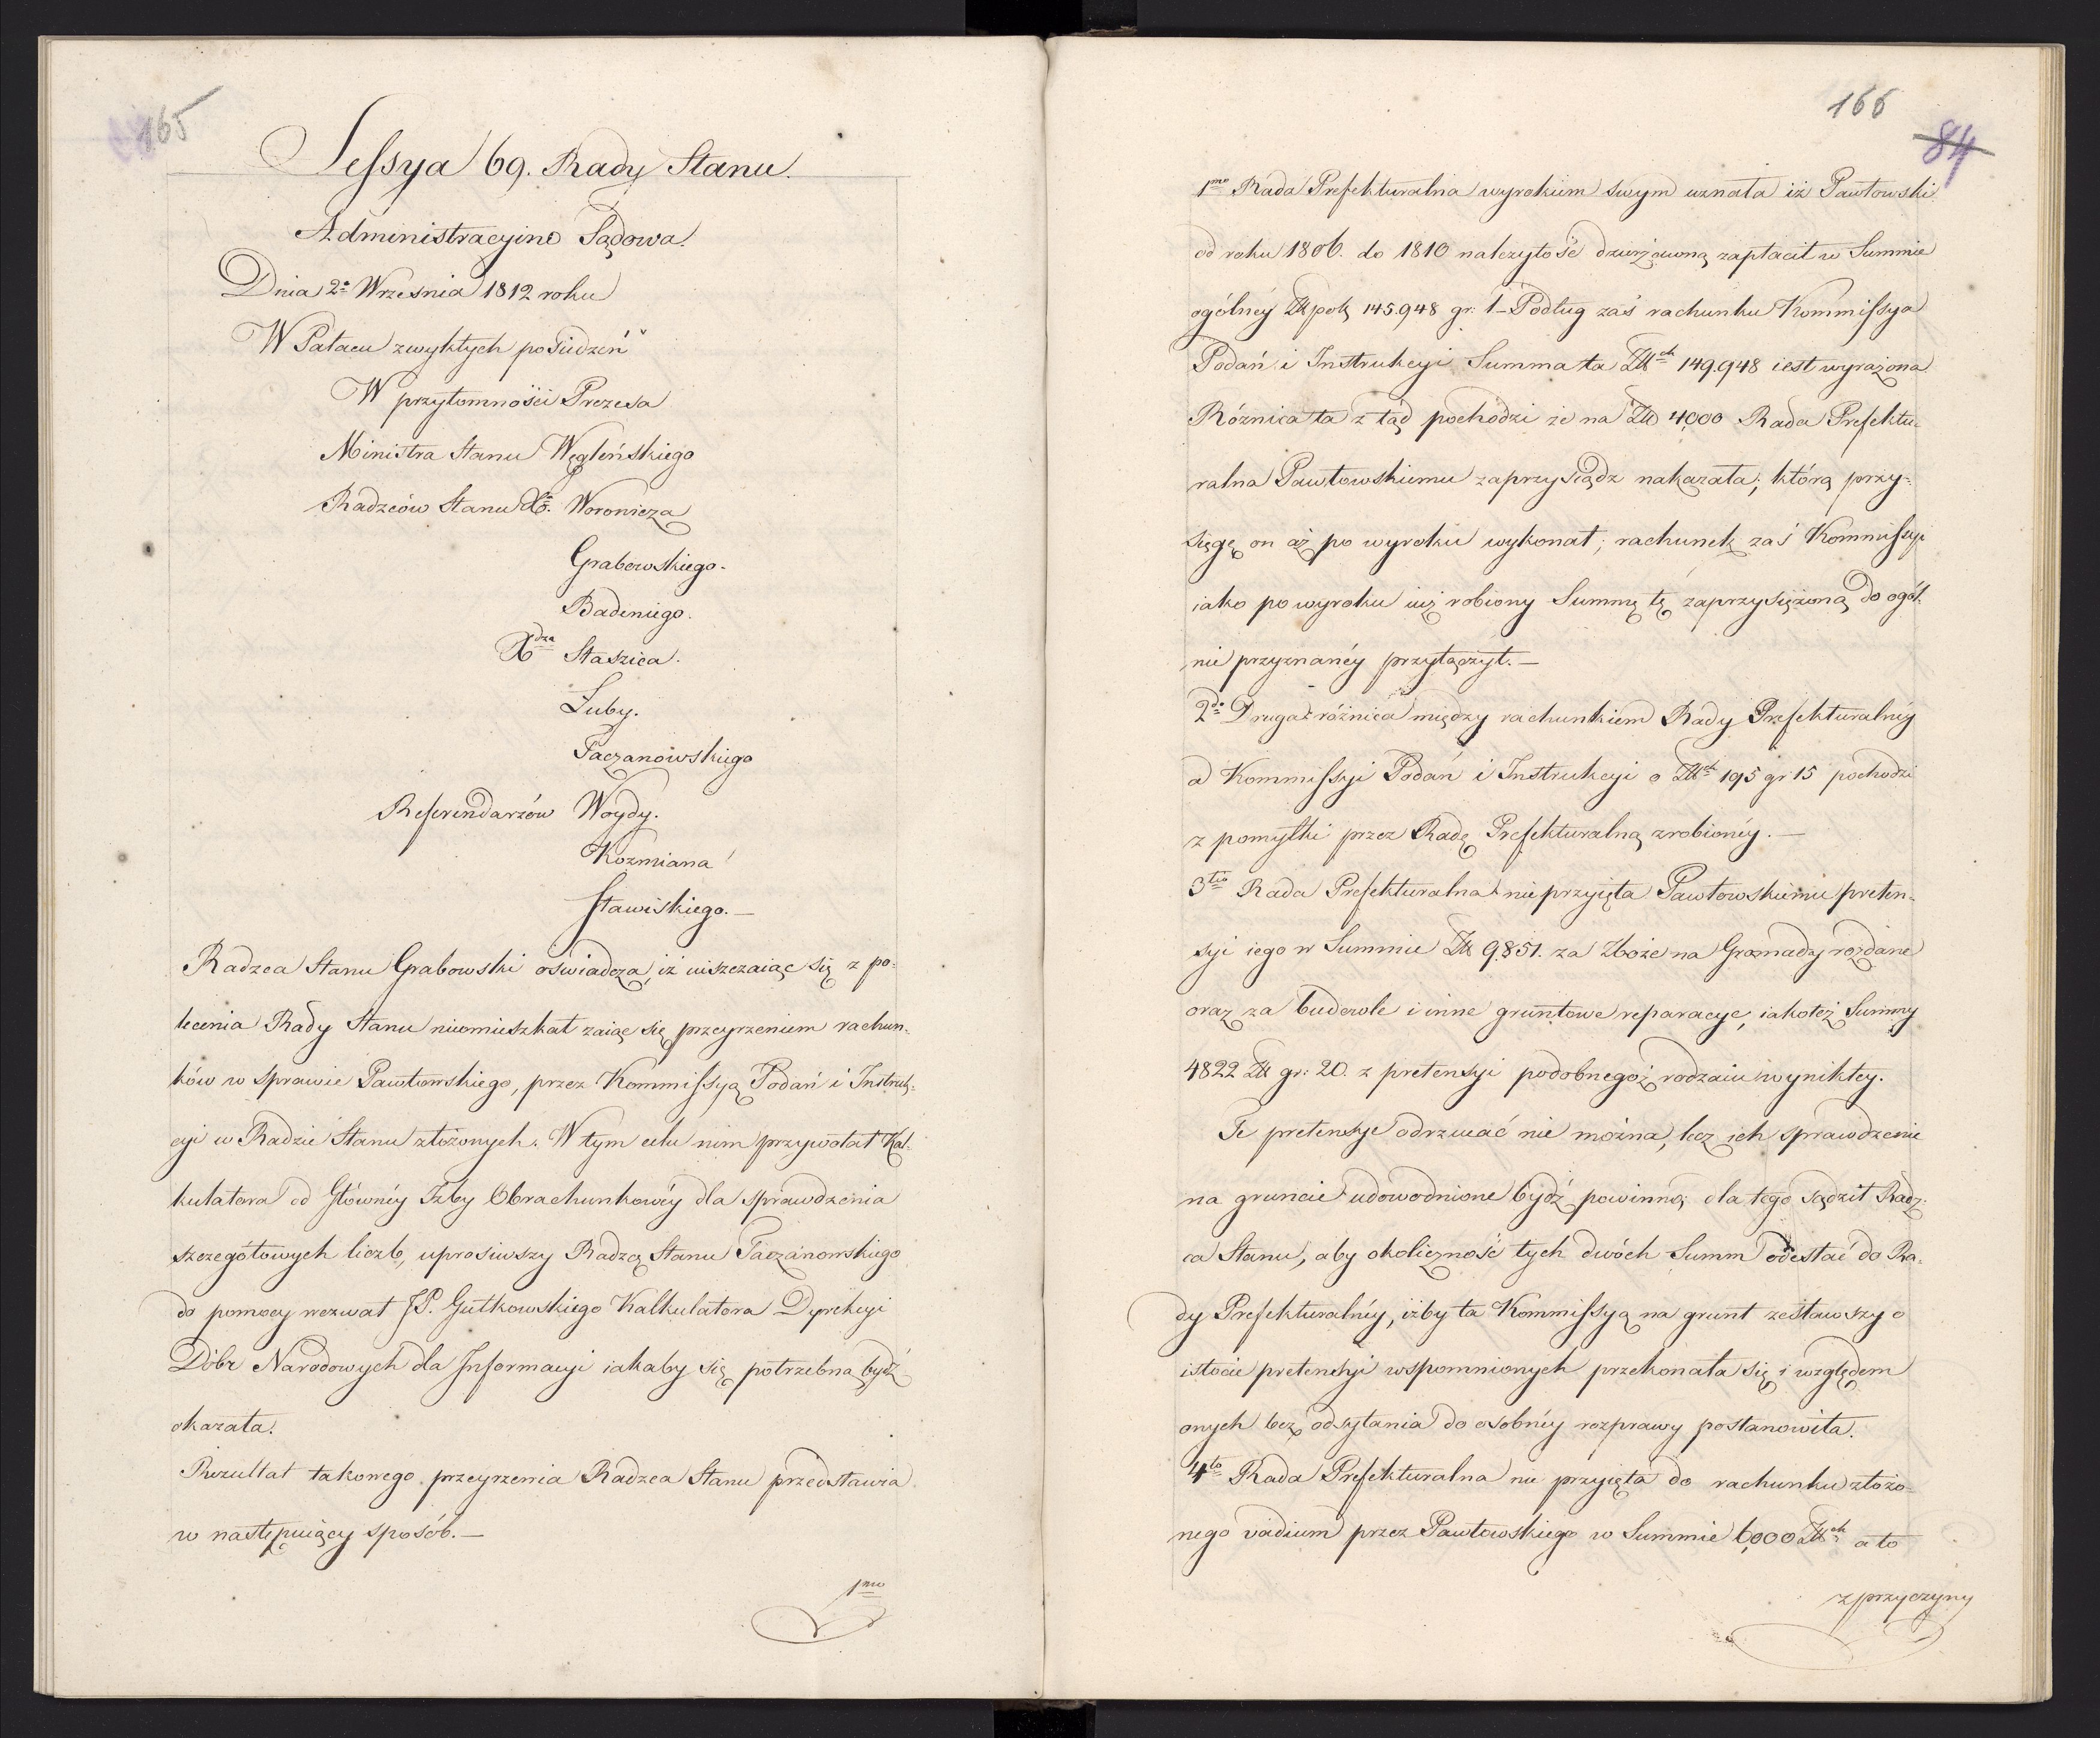 165
Sessya 69. Rady Stanu.
Administracyino Sądowa.
Dnia 2º Września 1812 roku
W Pałacu zwykłych posiedzeń
W przytomności Prezesa
Ministra Stanu Węgleńskiego
Radzców Stanu Xº. Woronicza
Grabowskiego.
Badeniego.
Xdza Staszica.
Łuby.
Taczanowskiego
Referendarzów Woydy.
Kozmiana
Sławiskiego.—
Radzca Stanu Grabowski oświadcza, iż uiszczaiąc się z po-
lecenia Rady Stanu nieomieszkał zaiąć się przeyrzeniem rachun-
ków w sprawie Pawłowskiego, przez Kommissyą Podań i Instruk-
cyi w Radzie Stanu złożonych. W tym celu nim przywołał Kal-
kulatora od Główney Izby Obrachunkowéy dla sprawdzenia
szczegółowych liczb, uprosiwszy Radzcę Stanu Taczanowskiego
do pomocy wezwał JP. Gutkowskiego Kalkulatora Dyrekcyi
Dóbr Narodowych dla Informacyi iakaby się potrzebną bydź
okazała.
Rezultat takowego przeyrzenia Radzca Stanu przedstawia
w następuiący sposób.—
1mo
166
84
1mo Rada Prefekturalna wyrokiem swym uznała iż Pawłowski
od roku 1806. do 1810 należytość dzierżawną zapłacił w Summie
ogólney Złł pols 145.948 gr: 1– Podług zaś rachunku Kommissya
Podań i Instrukcyi Summa ta Złłch 149.948 iest wyrażona
Róznica ta z tąd pochodzi że na Złł 4,000 Rada Prefektu-
ralna Pawłowskiemu zaprzysiądz nakazała; którą przy-
sięgę on aż po wyroku wykonał; rachunek zaś Kommissyi
iako po wyroku iuż robiony Summę tę zaprzysiężoną do ogól-
nie przyznanéy przyłączył.—
2do Druga różnica między rachunkiem Rady Prefekturalnéy
a Kommissyi Podań i Instrukcyi o Złłch 195 gr 15 pochodzi
z pomyłki przez Radę Prefekturalną zrobionéy.—
3tio Rada Prefekturalna nie przyięła Pawłowskiemu preten-
syi iego w Summie Złł 9,851. za Zboże na Gromady rozdane
oraz za budowle i inne gruntowe reparacye, iakoteż Summy
4822 Złł gr: 20. z pretensyi podobnegoż rodzaiu wynikłey.
Te pretensye odrzucać nie można, lecz ich sprawdzenie
na gruncie udowodnione bydź powinno; dla tego sądził Radz-
ca Stanu, aby okoliczność tych dwóch Summ odesłać do Ra-
dy Prefekturalnéy, iżby ta Kommissyą na grunt zesławszy o
istocie pretensyi wspomnionych przekonała się i względem
onych bez odsyłania do osobnéy rozprawy postanowiła.
4to Rada Prefekturalna nie przyięła do rachunku złożo-
nego vadium przez Pawłowskiego w Summie 6,000 Złłch a to
z przyczyny